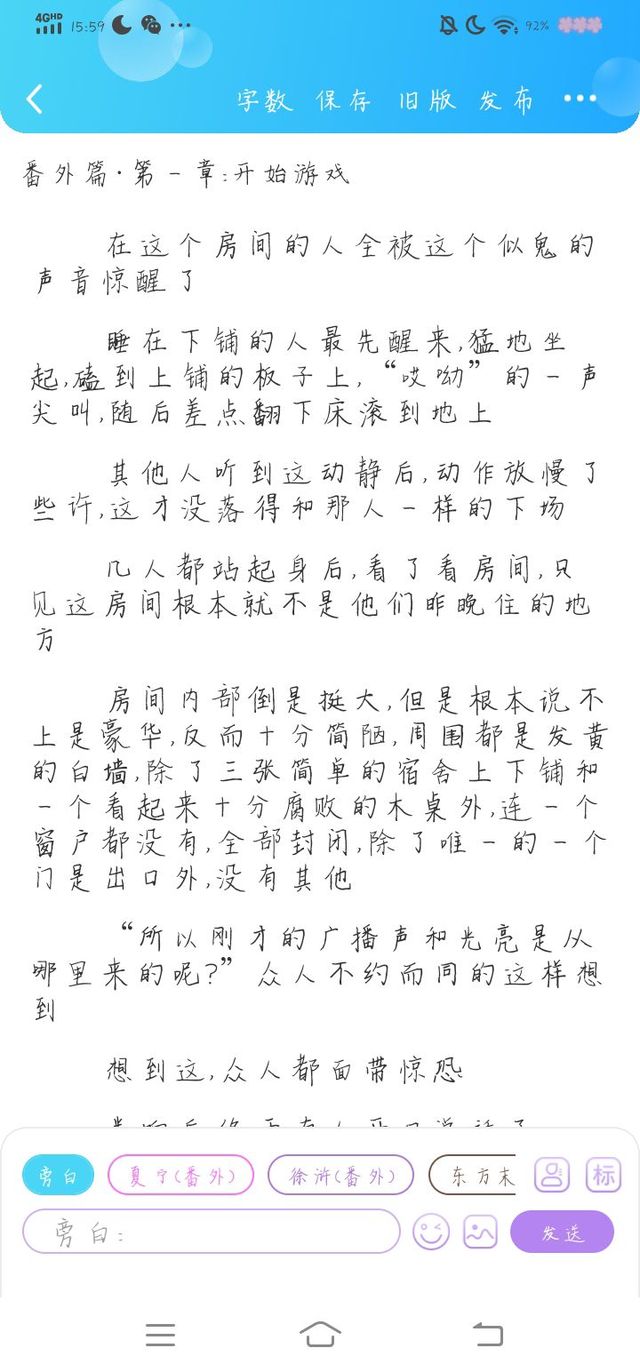 4GHD 15:59 92%
字数 保存 旧版 发布
番外篇·第一章:开始游戏
在这个房间的人全被这个似鬼的
声音惊醒了
睡在下铺的人最先醒来,猛地坐
起,磕到上铺的板子上,“哎呦”的一声
尖叫,随后差点翻下床滚到地上
其他人听到这动静后,动作放慢了
些许,这才没落得和那人一样的下场
几人都站起身后,看了看房间,只
见这房间根本就不是他们昨晚住的地
方
房间内部倒是挺大,但是根本说不
上是豪华,反而十分简陋,周围都是发黄
的白墙,除了三张简单的宿舍上下铺和
一个看起来十分腐败的木桌外,连一个
窗户都没有,全部封闭,除了唯一的一个
门是出口外,没有其他
“所以刚才的广播声和光亮是从
哪里来的呢?”众人不约而同的这样想
到
想到这,众人都面带惊恐
旁白 夏宁(番外) 徐浒(番外) 东方末 标
旁白: 发送